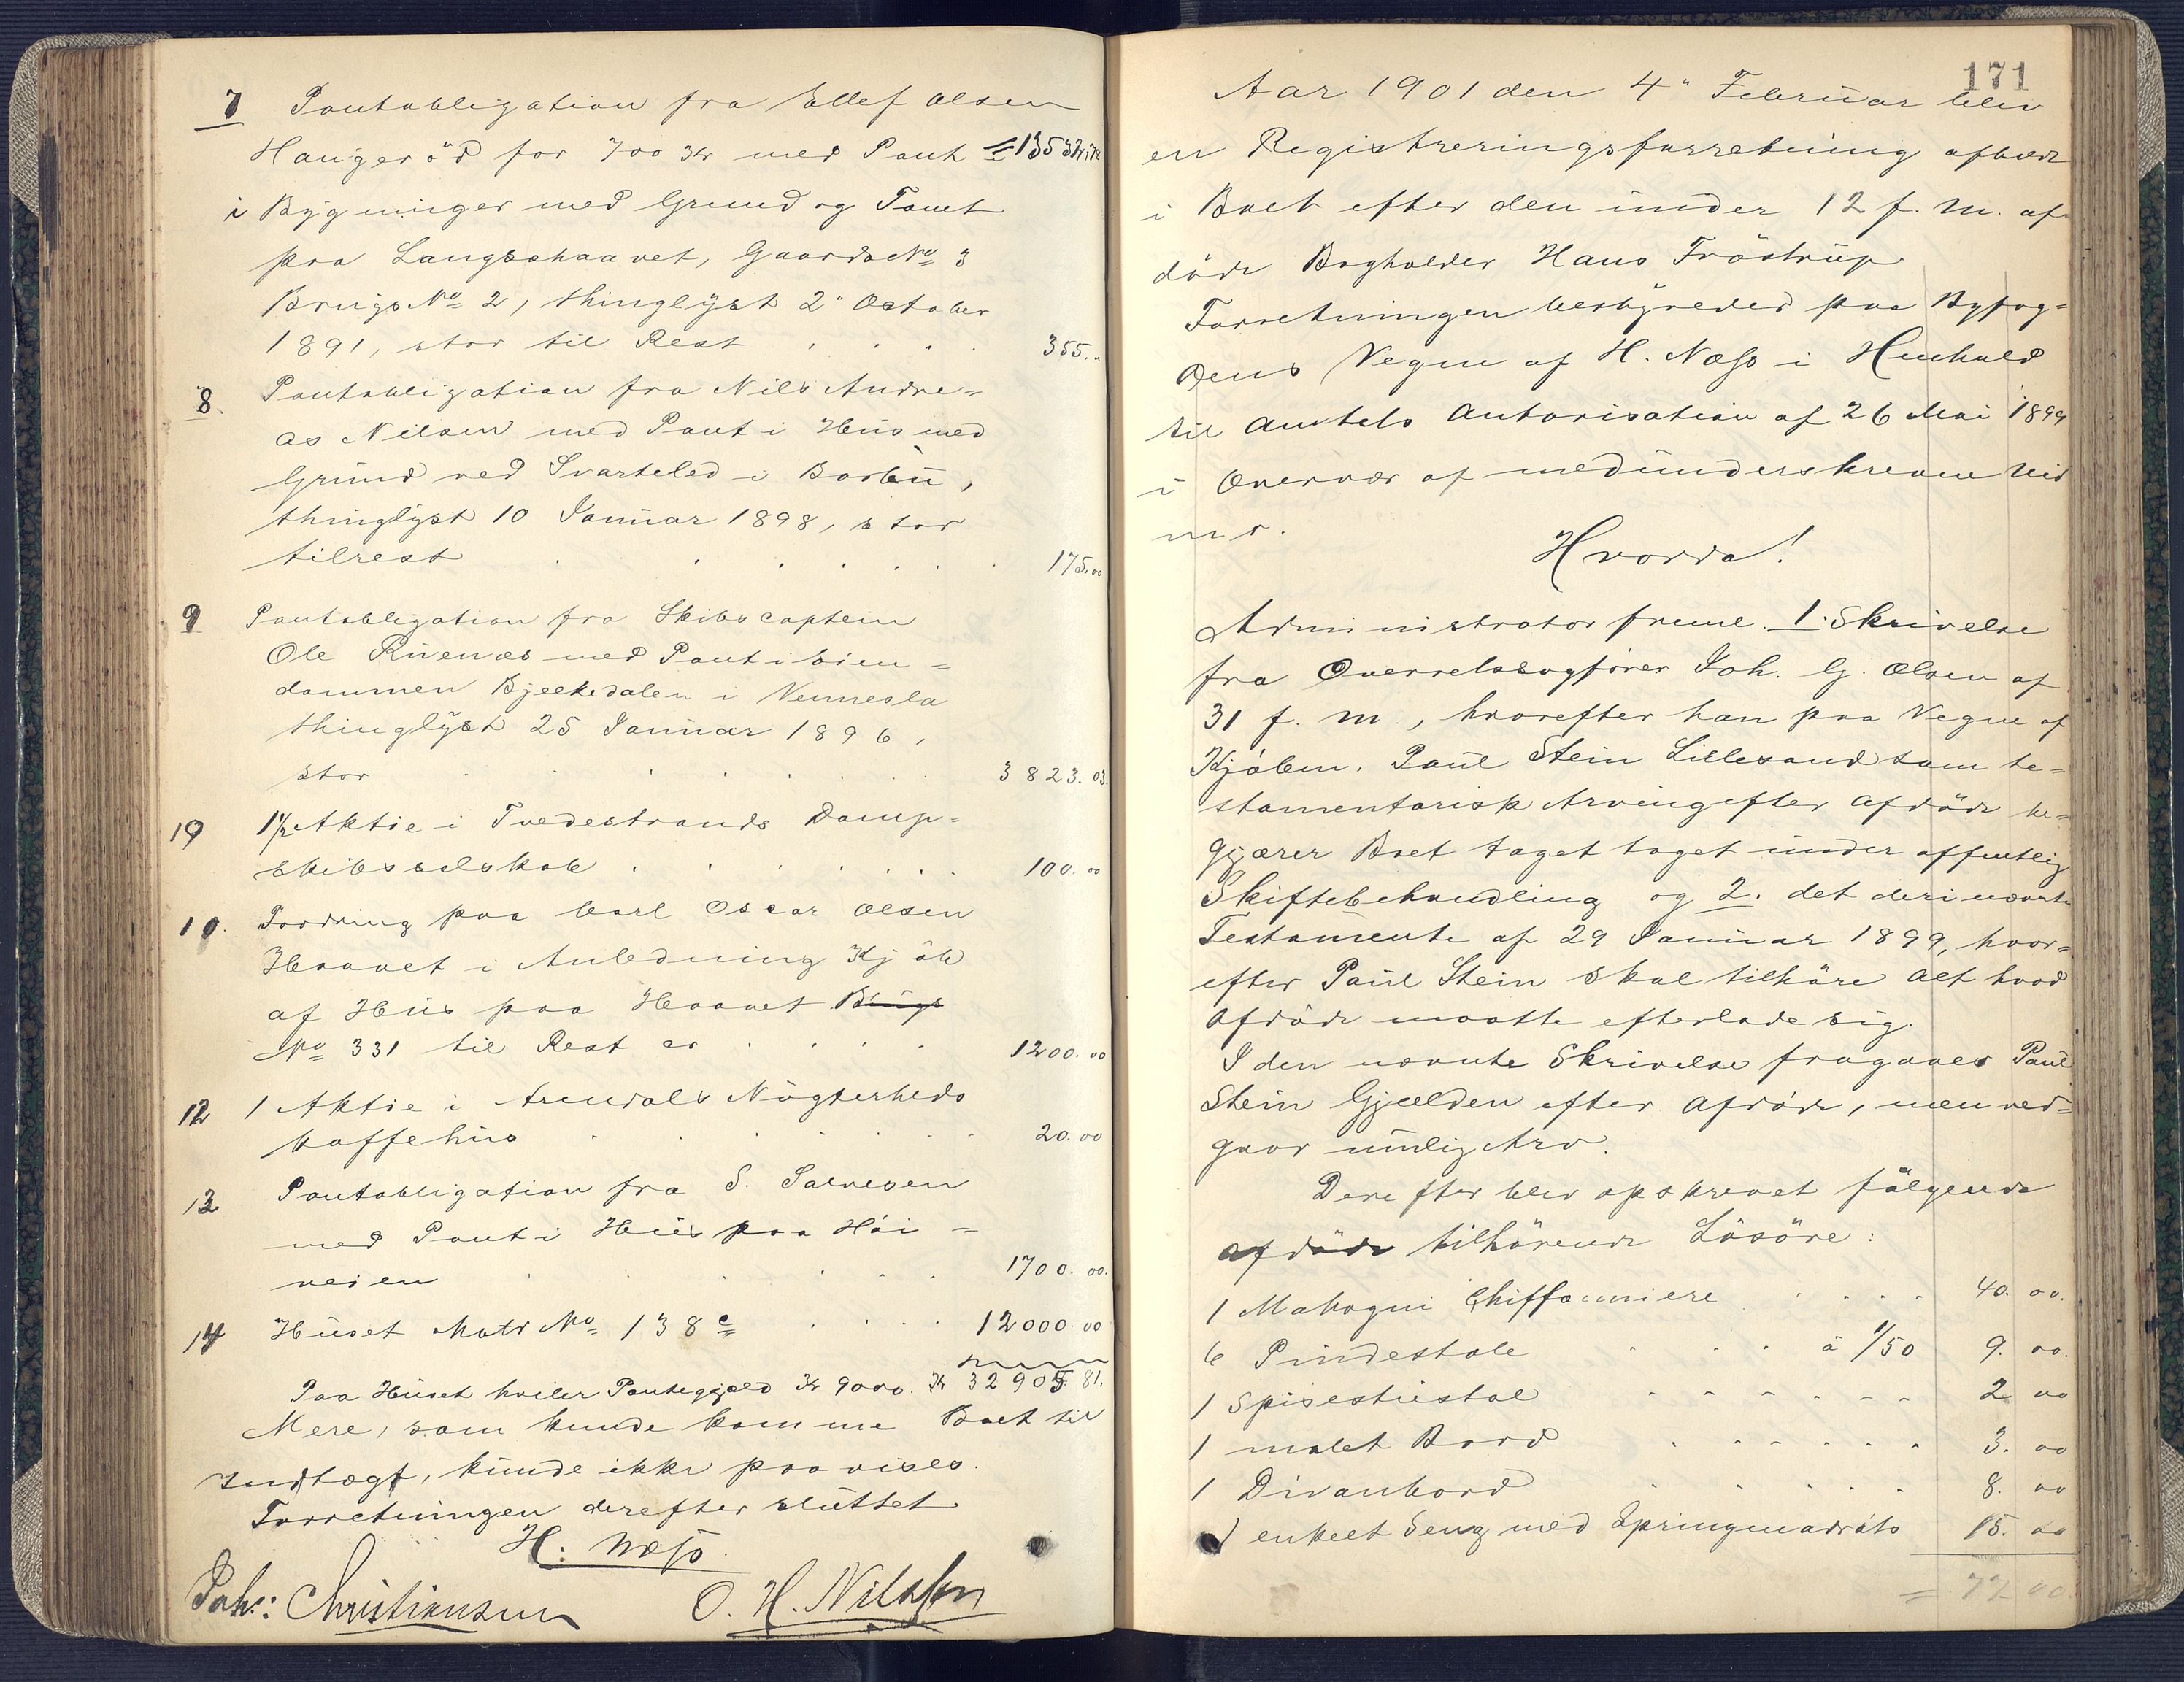 7 Pantobligation fra Ellef Olsen
Haugeröd for 700 Kr med Pant
i Bygninger med Grund og Tomt
paa Langsæhaavet, Gaards No 3
Brugs No 2, thinglyst 2" October
1891, stor til Rest . . . . 355. "
8. Pantobligation fra Nils Andre=
as Nilsen med Pant i Hus med
Grund ved Svarteled i Barbu,
thinglyst 10 Januar 1898, stor
tilrest . . . . . . 175.00
9 Pantobligation fra Skibscaptein
Ole Ruenæs med Pant i Eien=
dommen Bjellkedalen i Vennesla
thinglyst 25 Januar 1896,
stor . . . . . . 3823.03.
10 1/2 Aktie i Tvedestrands Damp=
skibsselskab . . . . . . 100.00
10. Fordring paa Carl Oscar Olsen
Haavet i Anledning Kjöb
af Hus paa Haavet Brugs
No 331 til Rest er . . . . 1200.00
12 1 Aktie i Arendals Nögterheds
kaffehus . . . . . . 20.00
13 Pantobligation fra S. Salvesen
med Pant i Hus paa Höi=
veien . . . . . . 1700.00.
14 Huset Matr No 138c . . . . 12000.00
Paa Huset hviler Pantegjæld Kr 9000. Kr 32905.81.
Mere, som kunde komme Boet til
Indtægt, kunde ikke paavises.
Forretningen derefter sluttet
H. Næss.
Joh: Christiansen O. H. Nilssen
171
Aar 1901 den 4" Februar blev
en Registreringsforretning afholdt
i Boet efter den under 12 f. M. af
döde Bogholder Hans Fröstrup
Forretningen bestyredes paa Byfog=
dens Vegne af H. Næss i Henhold
til Amtets Autorisation af 26 Mai 1899
i Overvær af medunderskrevne Vid
ner.
Hvorda!
Administrator freml. 1. Skrivelse
fra Overretssagförer Joh. G. Olsen af
31 f. M., hvorefter han paa Vegne af
Kjöbm. Paul Stein Lillesand som te=
stamentarisk Arving efter afdöde be=
gjærer Boet taget taget under offentlig
Skiftebehandling og 2. det deri nævnte
Testamente af 29 Januar 1899, hvor=
efter Paul Stein skal tilhöre alt hvad
afdöde maatte efterlade sig.
I den nævnte Skrivelse fragaaes Paul
Stein Gjælden efter Afdöde, men ved=
gaar mulig Arv.
Derefter blev opskrevet fölgende
afdöde tilhörende Lösöre:
1 Mahogni Chiffonniere . . . . 40. 00.
6 Pindestole . . . á 1/50 9. 00.
1 Spisestuestol - - - - - - 2 00
1 malet Bord . - - - - . 3. 00
1 Divanbord . . . . . 8. 00
1 enkelt Seng med Springmadrats 15. 00
= 77.00.